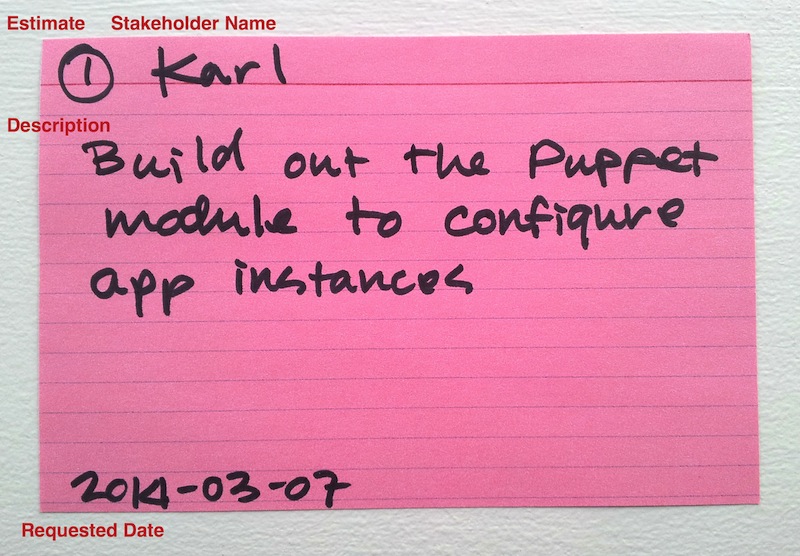 Estimate Stakeholder Name
1 Karl
Description
Build out the Puppet
module to configure
app instances
2014-03-07
Requested Date